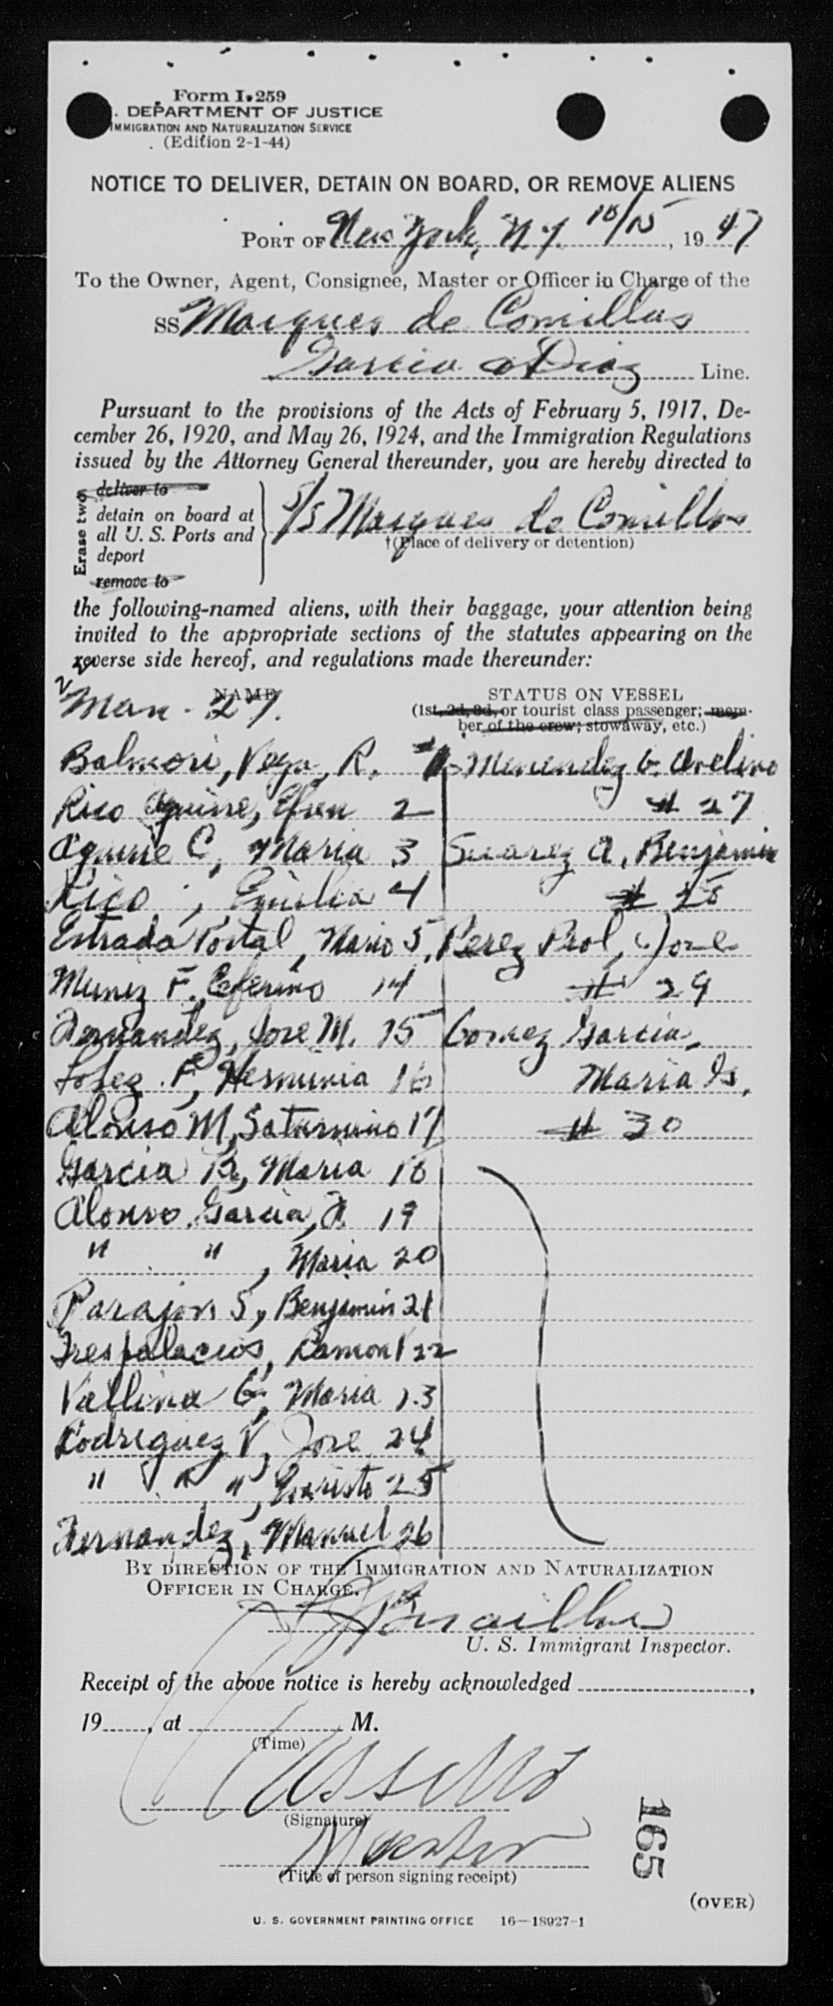 Form I-259
. DEPARTMENT OF JUSTICE
IMMIGRATION AND NATURALIZATION SERVICE
(Edition 2-1-44)
NOTICE TO DELIVER, DETAIN ON BOARD, OR REMOVE ALIENS
PORT OF New York, N.Y. 10/15, 1947
To the Owner, Agent, Consignee, Master or Officer in Charge of the
SS Marques de Comillas
Garcia & Diaz Line.
Pursuant to the provisions of the Acts of February 5, 1917, De-
cember 26, 1920, and May 26, 1924, and the Immigration Regulations
issued by the Attorney General thereunder, you are hereby directed to
Erase two
deliver to
detain on board at
all U. S. Ports and
deport
remove to
S/S Marques de Comillas
†(Place of delivery or detention)
the following-named aliens, with their baggage, your attention being
invited to the appropriate sections of the statutes appearing on the
reverse side hereof, and regulations made thereunder:
22
Man. 27.
NAME
STATUS ON VESSEL
(1st, 2d, 3d, or tourist class passenger; mem-
ber of the crew; stowaway, etc.)
Balmori, Vega, R. #1
Rico Aguirre, Efren 2
Aguirre C, Maria 3
Rico ; Emilia 4
Estrada Portal, Mario 5
Muniz F., Ceferino 14
Fernandez, Jose M. 15
Lopez F, Herminia 16
Alonso M, Saturnino 17
Garcia B, Maria 18
Alonso Garcia, F. 19
" " , Maria 20
Parajon S, Benjamin 21
Trespalacios, Ramon 22
Vallina G, Maria 23
Rodriguez V, Jose 24
" " ", Evaristo 25
Fernandez, Manuel 26
Menendez G. Avelino
# 27
Suarez A, Benjamin
# 28
Perez Prol, Jose
# 29
Gomez Garcia,
Maria Is.
# 30
BY DIRECTION OF THE IMMIGRATION AND NATURALIZATION
OFFICER IN CHARGE.
U. S. Immigrant Inspector.
Receipt of the above notice is hereby acknowledged ,
19 , at M.
(Time)
(Signature)
Master
(Title of person signing receipt)
165
(OVER)
U. S. GOVERNMENT PRINTING OFFICE 16—18927-1